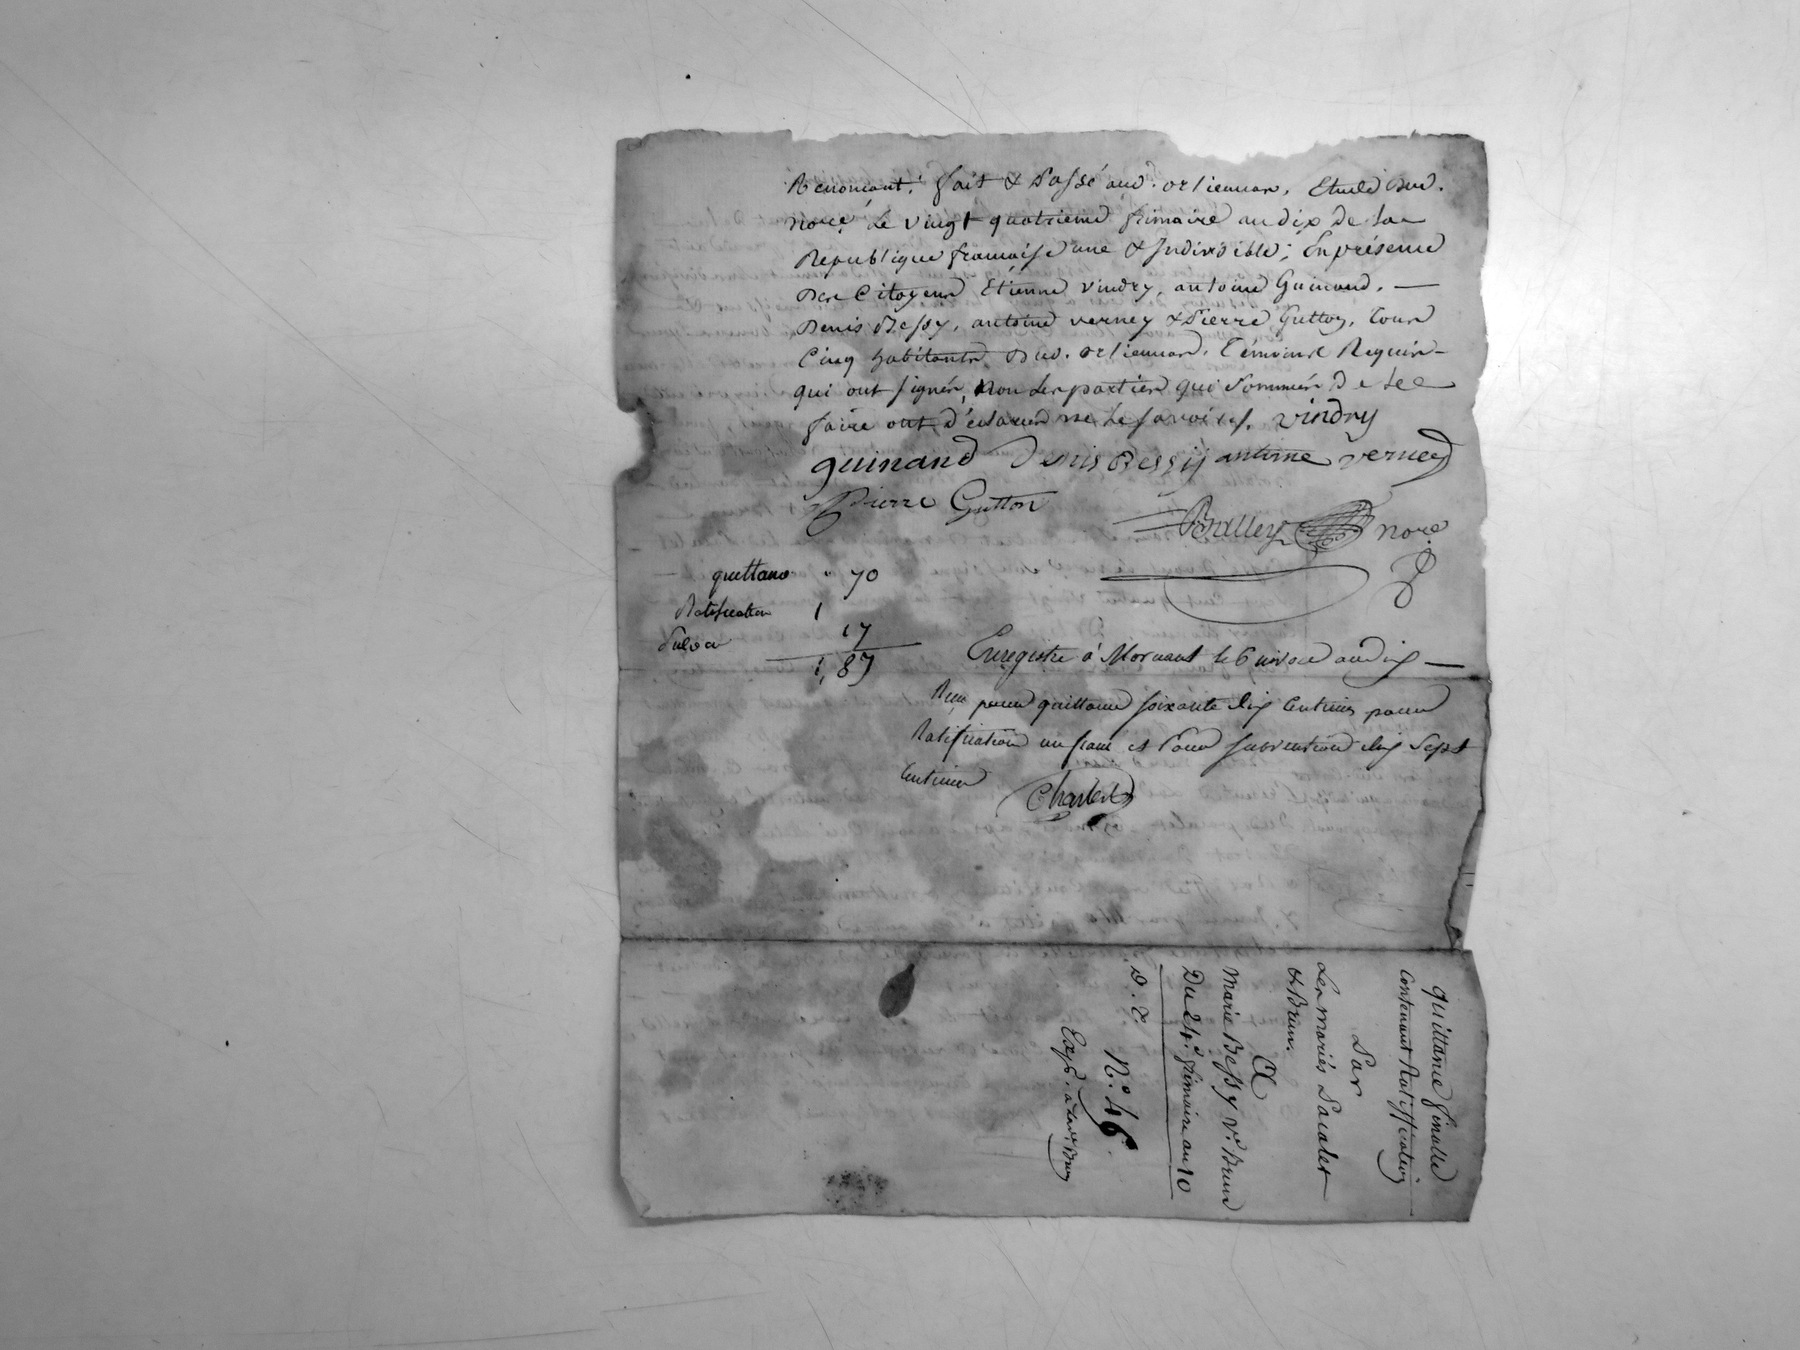 Renoncant. fait & Passé aud. orlienuar. Etude dud.
nore. Le vingt quatrieme frimaire an dix de la
Republique francaise une & Indivisible; En présence
Des Citoyens Etienne Vindry, antoine Guinand,
Denis Bessy, antoine verney & Pierre Gutton, tous
Cinq habitants dud. orlienuar, témoins Requis
qui ont signés, non les parties qui sommés de le
faire ont déclarés ne le savoir. Vindry
guinand Denis Bessy antoine verney
Pierre Gutton
Balley nore
quittance 70
Ratification 1
Subon 17
1, 87
Enregistré à Mornant le 6 nivose an dix
Reçu pour quittance soixante dix centimes pour
Ratification un franc et Pour subvention dix sept
centimes
quittance finalle
contenant Ratiffication
Par
Les mariés
& Brun.
A
Marie Bessy Ve. Brun
Du 24e. frimaire an 10
N.º 46.
Exp. a lad. Brun